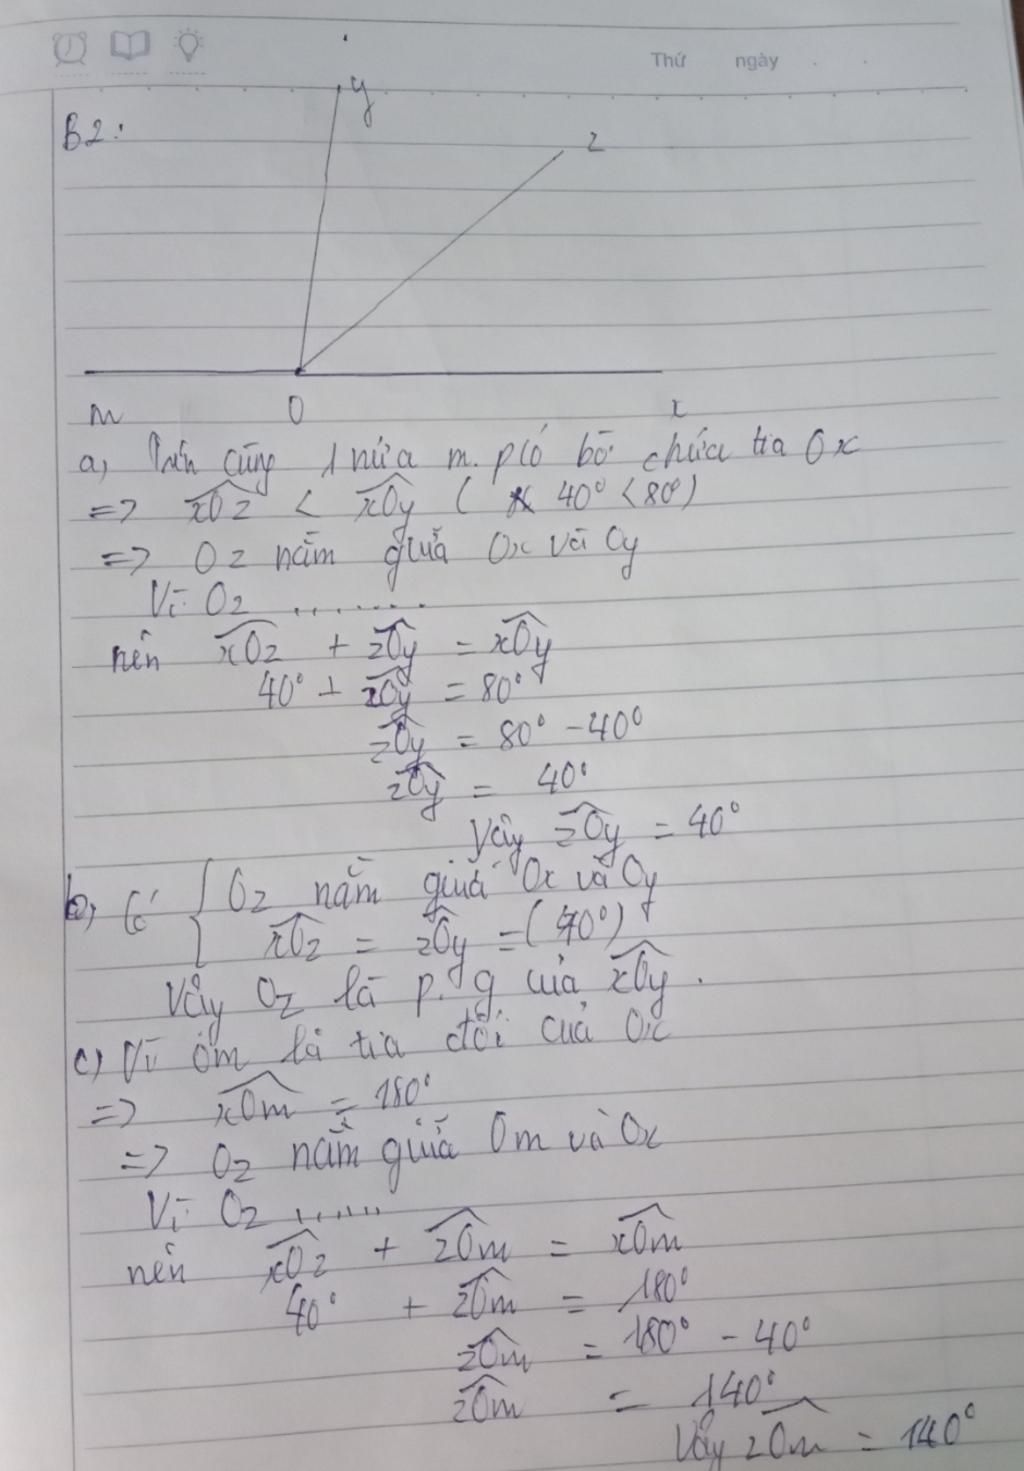 Thứ ngày
y
B2:
z
m O x
a, Trên cùng 1 nửa m.p có bờ chứa tia Ox
=> xOz < xOy ( 40° < 80°)
=> Oz nằm giữa Ox và Oy
Vì Oz ........
nên xOz + zOy = xOy
40° + zOy = 80°
zOy = 80° - 40°
zOy = 40°
Vậy zOy = 40°
b, Có { Oz nằm giữa Ox và Oy
xOz = zOy = (40°)
Vậy Oz là p.g của xOy.
c) Vì Om là tia đối của Ox
=> xOm = 180°
=> Oz nằm giữa Om và Ox
Vì Oz ......
nên xOz + zOm = xOm
40° + zOm = 180°
zOm = 180° - 40°
zOm = 140°
Vậy zOm = 140°